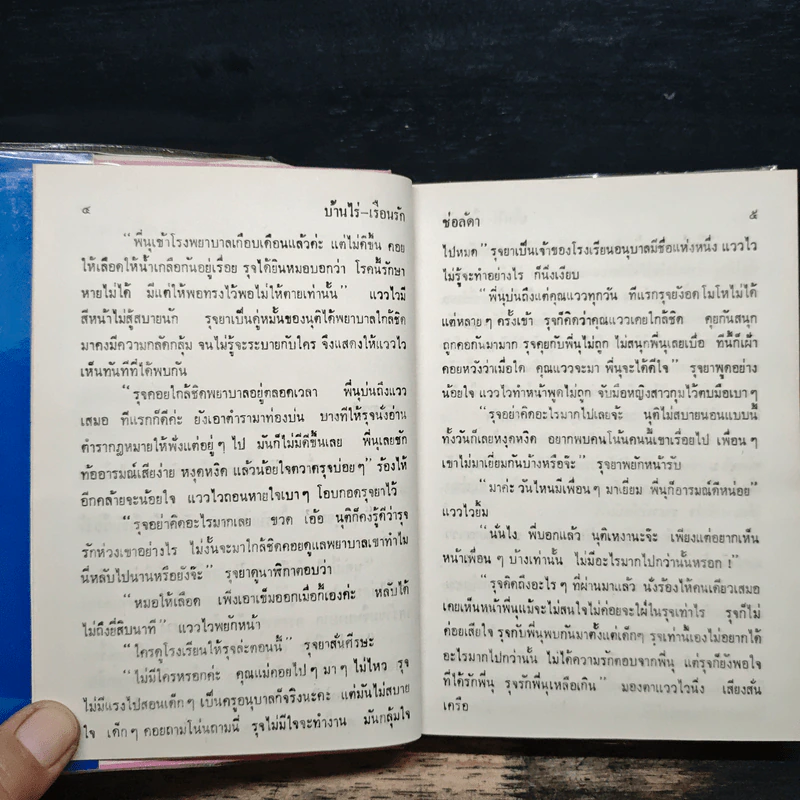 ๔ บ้านไร่–เรือนรัก
“พี่นุเข้าโรงพยาบาลเกือบเดือนแล้วค่ะ แต่ไม่ดีขึ้น คอย
ให้เลือดให้น้ำเกลือกันอยู่เรื่อย รุจได้ยินหมอบอกว่า โรคนี้รักษา
หายไม่ได้ มีแต่ให้พอทรงไว้พอไม่ให้ตายเท่านั้น” แววไวมี
สีหน้าไม่สู้สบายนัก รุจยาเป็นคู่หมั้นของนุติได้พยาบาลใกล้ชิด
มาคงมีความกลัดกลุ้ม จนไม่รู้จะระบายกับใคร จึงแสดงให้แววไว
เห็นทันทีที่ได้พบกัน
“รุจคอยใกล้ชิดพยาบาลอยู่ตลอดเวลา พี่นุบ่นถึงแวว
เสมอ ทีแรกก็ดีค่ะ ยังเอาตำรามาท่องบ่น บางทีให้รุจนั่งอ่าน
ตำรากฎหมายให้ฟังแต่อยู่ๆ ไป มันก็ไม่มีดีขึ้นเลย พี่นุเลยชัก
ท้ออารมณ์เสียง่าย หงุดหงิด แล้วน้อยใจตวาดรุจบ่อยๆ” ร้องไห้
อีกคล้ายจะน้อยใจ แววไวถอนหายใจเบาๆ โอบกอดรุจยาไว้
“รุจอย่าคิดอะไรมากเลย ชวด เอ้อ นุติก็คงรู้ดีว่ารุจ
รักห่วงเขาอย่างไร ไม่งั้นจะมาใกล้ชิดคอยดูแลพยาบาลเขาทำไม
นี่หลับไปนานหรือยังจ๊ะ” รุจยาดูนาฬิกาตอบว่า
“หมอให้เลือด เพิ่งเอาเข็มออกเมื่อกี้เองค่ะ หลับได้
ไม่ถึงยี่สิบนาที” แววไวพยักหน้า
“ใครดูโรงเรียนให้รุจล่ะตอนนี้” รุจยาสั่นศีรษะ
“ไม่มีใครหรอกค่ะ คุณแม่คอยไปๆ มาๆ ไม่ไหว รุจ
ไม่มีแรงไปสอนเด็กๆ เป็นครูอนุบาลก็จริงนะคะ แต่มันไม่สบาย
ใจ เด็กๆ คอยถามโน่นถามนี่ รุจไม่มีใจจะทำงาน มันกลุ้มใจ
ช่อลัดา ๕
ไปหมด” รุจยาเป็นเจ้าของโรงเรียนอนุบาลมีชื่อแห่งหนึ่ง แววไว
ไม่รู้จะทำอย่างไร ก็นิ่งเงียบ
“พี่นุบ่นถึงแต่คุณแววทุกวัน ทีแรกรุจยังอดโมโหไม่ได้
แต่หลายๆ ครั้งเข้า รุจก็คิดว่าคุณแววเคยใกล้ชิด คุยกันสนุก
ถูกคอกันมามาก รุจคุยกับพี่นุไม่ถูก ไม่สนุกพี่นุเลยเบื่อ ทีนี้ก็เฝ้า
คอยหวังว่าเมื่อใด คุณแววจะมา พี่นุจะได้ดีใจ” รุจยาพูดอย่าง
น้อยใจ แววไวทำหน้าพูดไม่ถูก จับมือหญิงสาวกุมไว้ตบมือเบาๆ
“รุจอย่าคิดอะไรมากไปเลยจ้ะ นุติไม่สบายนอนแบบนี้
ทั้งวันก็เลยหงุดหงิด อยากพบคนโน้นคนนี้เขาเรื่อยไป เพื่อนๆ
เขาไม่มาเยี่ยมกันบ้างหรือจ๊ะ” รุจยาพยักหน้ารับ
“มาค่ะ วันไหนมีเพื่อนๆ มาเยี่ยม พี่นุก็อารมณ์ดีหน่อย”
แววไวยิ้ม
“นั่นไง พี่บอกแล้ว นุติเหงานะจ๊ะ เพียงแต่อยากเห็น
หน้าเพื่อนๆ บ้างเท่านั้น ไม่มีอะไรมากไปกว่านั้นหรอก !”
“รุจคิดถึงอะไรๆ ที่ผ่านมาแล้ว นั่งร้องไห้คนเดียวเสมอ
เคยเห็นหน้าพี่นุแม้จะไม่สนใจไม่ค่อยจะใฝ่ในรุจเท่าไร รุจก็ไม่
ค่อยเสียใจ รุจกับพี่นุพบกันมาตั้งแต่เด็กๆ รุจเท่านี้เองไม่อยากได้
อะไรมากไปกว่านั้น ไม่ได้ความรักตอบจากพี่นุ แต่รุจก็ยังพอใจ
ที่ได้รักพี่นุ รุจรักพี่นุเหลือเกิน” มองตาแววไวนิ่ง เสียงสั่น
เครือ